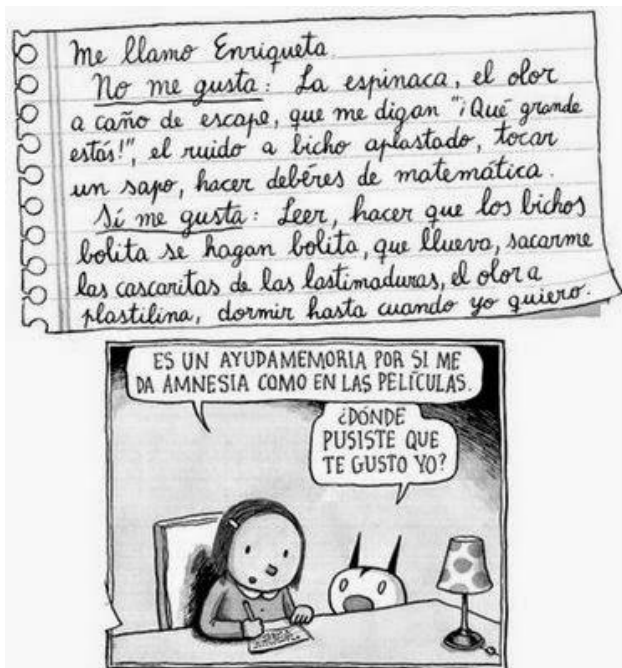 Me llamo Enriqueta.
No me gusta: La espinaca, el olor
a caño de escape, que me digan "¡Qué grande
estás!", el ruido a bicho aplastado, tocar
un sapo, hacer debéres de matemática.
Sí me gusta: Leer, hacer que los bichos
bolita se hagan bolita, que llueva, sacarme
las cascaritas de las lastimaduras, el olor a
plastilina, dormir hasta cuando yo quiero.
ES UN AYUDAMEMORIA POR SI ME
DA AMNESIA COMO EN LAS PELÍCULAS.
¿DÓNDE
PUSISTE QUE
TE GUSTO YO?